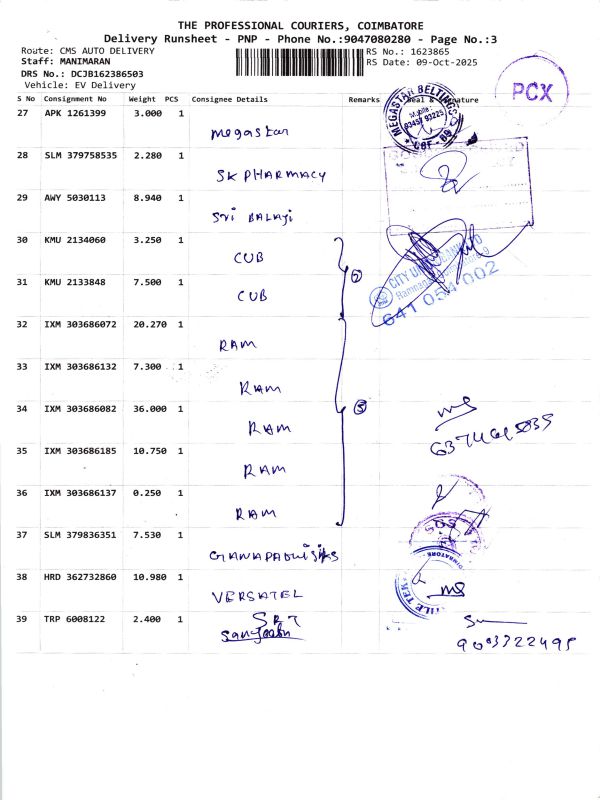 THE PROFESSIONAL COURIERS, COIMBATORE
Delivery Runsheet - PNP - Phone No.:9047080280 - Page No.:3
Route: CMS AUTO DELIVERY
RS No.: 1623865
Staff: MANIMARAN
RS Date: 09-Oct-2025
DRS No.: DCJB162386503
Vehicle: EV Delivery
PCX
S No Consignment No Weight PCS Consignee Details Remarks Seal & Signature
MEGASTAR BELTINGS
Mobile:
93457 93225
CBE - 09
27 APK 1261399 3.000 1
megastar
28 SLM 379758535 2.280 1
SK PHARMACY
29 AWY 5030113 8.940 1
Sri BALAJi
30 KMU 2134060 3.250 1
CUB
CITY UNION BANK LTD
641 054 002
31 KMU 2133848 7.500 1
CUB
32 IXM 303686072 20.270 1
RAM
33 IXM 303686132 7.300 1
RAM
34 IXM 303686082 36.000 1
RAM
5
35 IXM 303686185 10.750 1
RAM
36 IXM 303686137 0.250 1
RAM
37 SLM 379836351 7.530 1
38 HRD 362732860 10.980 1
VERSATEL
39 TRP 6008122 2.400 1
SRT
9003322495